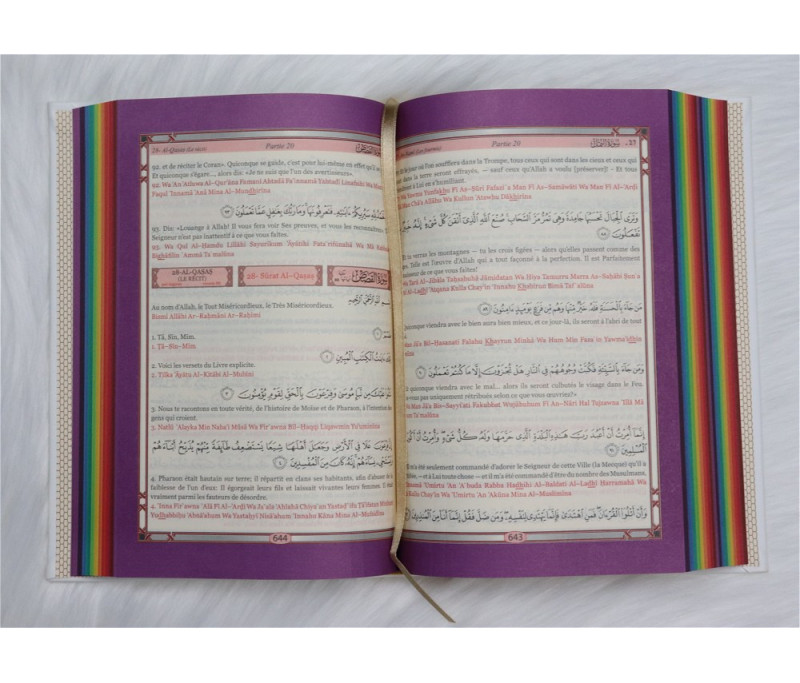 Partie 20
سورة النمل 27
jour où l'on soufflera dans la Trompe, tous ceux qui sont dans les cieux et ceux qui
dans la terre seront effrayés, — sauf ceux qu'Allah a voulu [préserver]! – Et tous
à Lui en s'humiliant.
Wa Yawma Yunfakhu Fī Aş-Şūri Fafazi'a Man Fī As-Samāwāti Wa Man Fī Al-'Arđi
Man Shā'a Allāhu Wa Kullun 'Atawhu Dākhirīna
وَتَرَى الْجِبَالَ تَحْسَبُهَا جَامِدَةً وَهِيَ تَمُرُّ مَرَّ السَّحَابِ صُنْعَ اللَّهِ الَّذِي أَتْقَنَ كُلَّ شَيْءٍ إِنَّهُ خَبِيرٌ
تَفْعَلُونَ ٨٨
tu verras les montagnes — tu les crois figées — alors qu'elles passent comme des
Telle est l'œuvre d'Allah qui a tout façonné à la perfection. Il est Parfaitement
de ce que vous faites!
Wa Tará Al-Jibāla Taĥsabuhā Jāmidatan Wa Hiya Tamurru Marra As-Saĥābi Şun'a
Al-Ladhī 'Atqana Kulla Shay'in 'Innahu Khabīrun Bimā Taf'alūna
مَن جَاءَ بِالْحَسَنَةِ فَلَهُ خَيْرٌ مِّنْهَا وَهُم مِّن فَزَعٍ يَوْمَئِذٍ آمِنُونَ ٨٩
viendra avec le bien aura bien mieux, et ce jour-là, ils seront à l'abri de tout
Jā'a Bil-Ĥasanati Falahu Khayrun Minhā Wa Hum Min Faza'in Yawma'idhin
وَمَن جَاءَ بِالسَّيِّئَةِ فَكُبَّتْ وُجُوهُهُمْ فِي النَّارِ هَلْ تُجْزَوْنَ إِلَّا مَا كُنتُمْ تَعْمَلُونَ ٩٠
quiconque viendra avec le mal... alors ils seront culbutés le visage dans le Feu.
-vous uniquement rétribués selon ce que vous œuvriez?»
Man Jā'a Bis-Sayyi'ati Fakubbat Wujūhuhum Fī An-Nāri Hal Tujzawna 'Illā Mā
Ta'malūna
إِنَّمَا أُمِرْتُ أَنْ أَعْبُدَ رَبَّ هَذِهِ الْبَلْدَةِ الَّذِي حَرَّمَهَا وَلَهُ كُلُّ شَيْءٍ وَأُمِرْتُ أَنْ أَكُونَ
الْمُسْلِمِينَ ٩١
m'a été seulement commandé d'adorer le Seigneur de cette Ville (la Mecque) qu'Il a
— et à Lui toute chose — et il m'a été commandé d'être du nombre des Musulmans.
'Innamā 'Umirtu 'An 'A'buda Rabba Hadhihi Al-Baldati Al-Ladhī Ĥarramahā Wa
Kullu Shay'in Wa 'Umirtu 'An 'Akūna Mina Al-Muslimīna
وَأَنْ أَتْلُوَ الْقُرْآنَ فَمَنِ اهْتَدَى فَإِنَّمَا يَهْتَدِي لِنَفْسِهِ وَمَن ضَلَّ فَقُلْ إِنَّمَا أَنَا مِنَ الْمُنذِرِينَ
643
28- al-Qasas (Le récit)
Partie 20
القصص
92. et de réciter le Coran». Quiconque se guide, c'est pour lui-même en effet qu'il
Et quiconque s'égare..., alors dis: «Je ne suis que l'un des avertisseurs».
92. Wa 'An 'Athowa Al-Qur'āna Famani Ahtadá Fa'innamā Yahtadī Linafsihi Wa Man
Faqul 'Innamā 'Anā Mina Al-Mundhirīna
الْحَمْدُ لِلَّهِ سَيُرِيكُمْ آيَاتِهِ فَتَعْرِفُونَهَا وَمَا رَبُّكَ بِغَافِلٍ عَمَّا تَعْمَلُونَ ٩٣
93. Dis: «Louange à Allah! Il vous fera voir Ses preuves, et vous les reconnaîtrez».
Seigneur n'est pas inattentif à ce que vous faites.
93. Wa Qul Al-Ĥamdu Lillāhi Sayurīkum 'Āyātihi Fata'rifūnahā Wa Mā
Bighāfilin 'Ammā Ta'malūna
28-AL-QASAS
(LE RÉCIT)
28- Sūrat Al-Qaşaş
سورة القصص
Au nom d'Allah, le Tout Miséricordieux, le Très Miséricordieux.
Bismi Allāhi Ar-Raĥmāni Ar-Raĥīmi
بسم الله الرحمن الرحيم
1. Tā, Sīn, Mīm.
1. Ţā-Sīn-Mīm
تِلْكَ آيَاتُ الْكِتَابِ الْمُبِينِ ٢
2. Voici les versets du Livre explicite.
2. Tilka 'Āyātu Al-Kitābi Al-Mubīni
عَلَيْكَ مِن نَّبَإِ مُوسَى وَفِرْعَوْنَ بِالْحَقِّ لِقَوْمٍ يُؤْمِنُونَ ٣
3. Nous te racontons en toute vérité, de l'histoire de Moïse et de Pharaon, à l'intention des
gens qui croient:
3. Natlū 'Alayka Min Naba'i Mūsá Wa Fir'awna Bil-Ĥaqqi Liqawmin Yu'uminūna
فِرْعَوْنَ عَلَا فِي الْأَرْضِ وَجَعَلَ أَهْلَهَا شِيَعًا يَسْتَضْعِفُ طَائِفَةً مِّنْهُمْ يُذَبِّحُ أَبْنَاءَهُمْ
نِسَاءَهُمْ إِنَّهُ كَانَ مِنَ الْمُفْسِدِينَ ٤
4. Pharaon était hautain sur terre; il répartit en clans ses habitants, afin d'abuser de la
faiblesse de l'un d'eux: Il égorgeait leurs fils et laissait vivantes leurs femmes. Il
vraiment parmi les fauteurs de désordre.
4. 'Inna Fir'awna 'Alā Fī Al-'Arđi Wa Ja'ala 'Ahlahā Shiya'an Yastađ'ifu Ţā'ifatan Minhum
Yudhabbiĥu 'Abnā'ahum Wa Yastaĥyī Nisā'ahum 'Innahu Kāna Mina Al-Mufsidīna
644